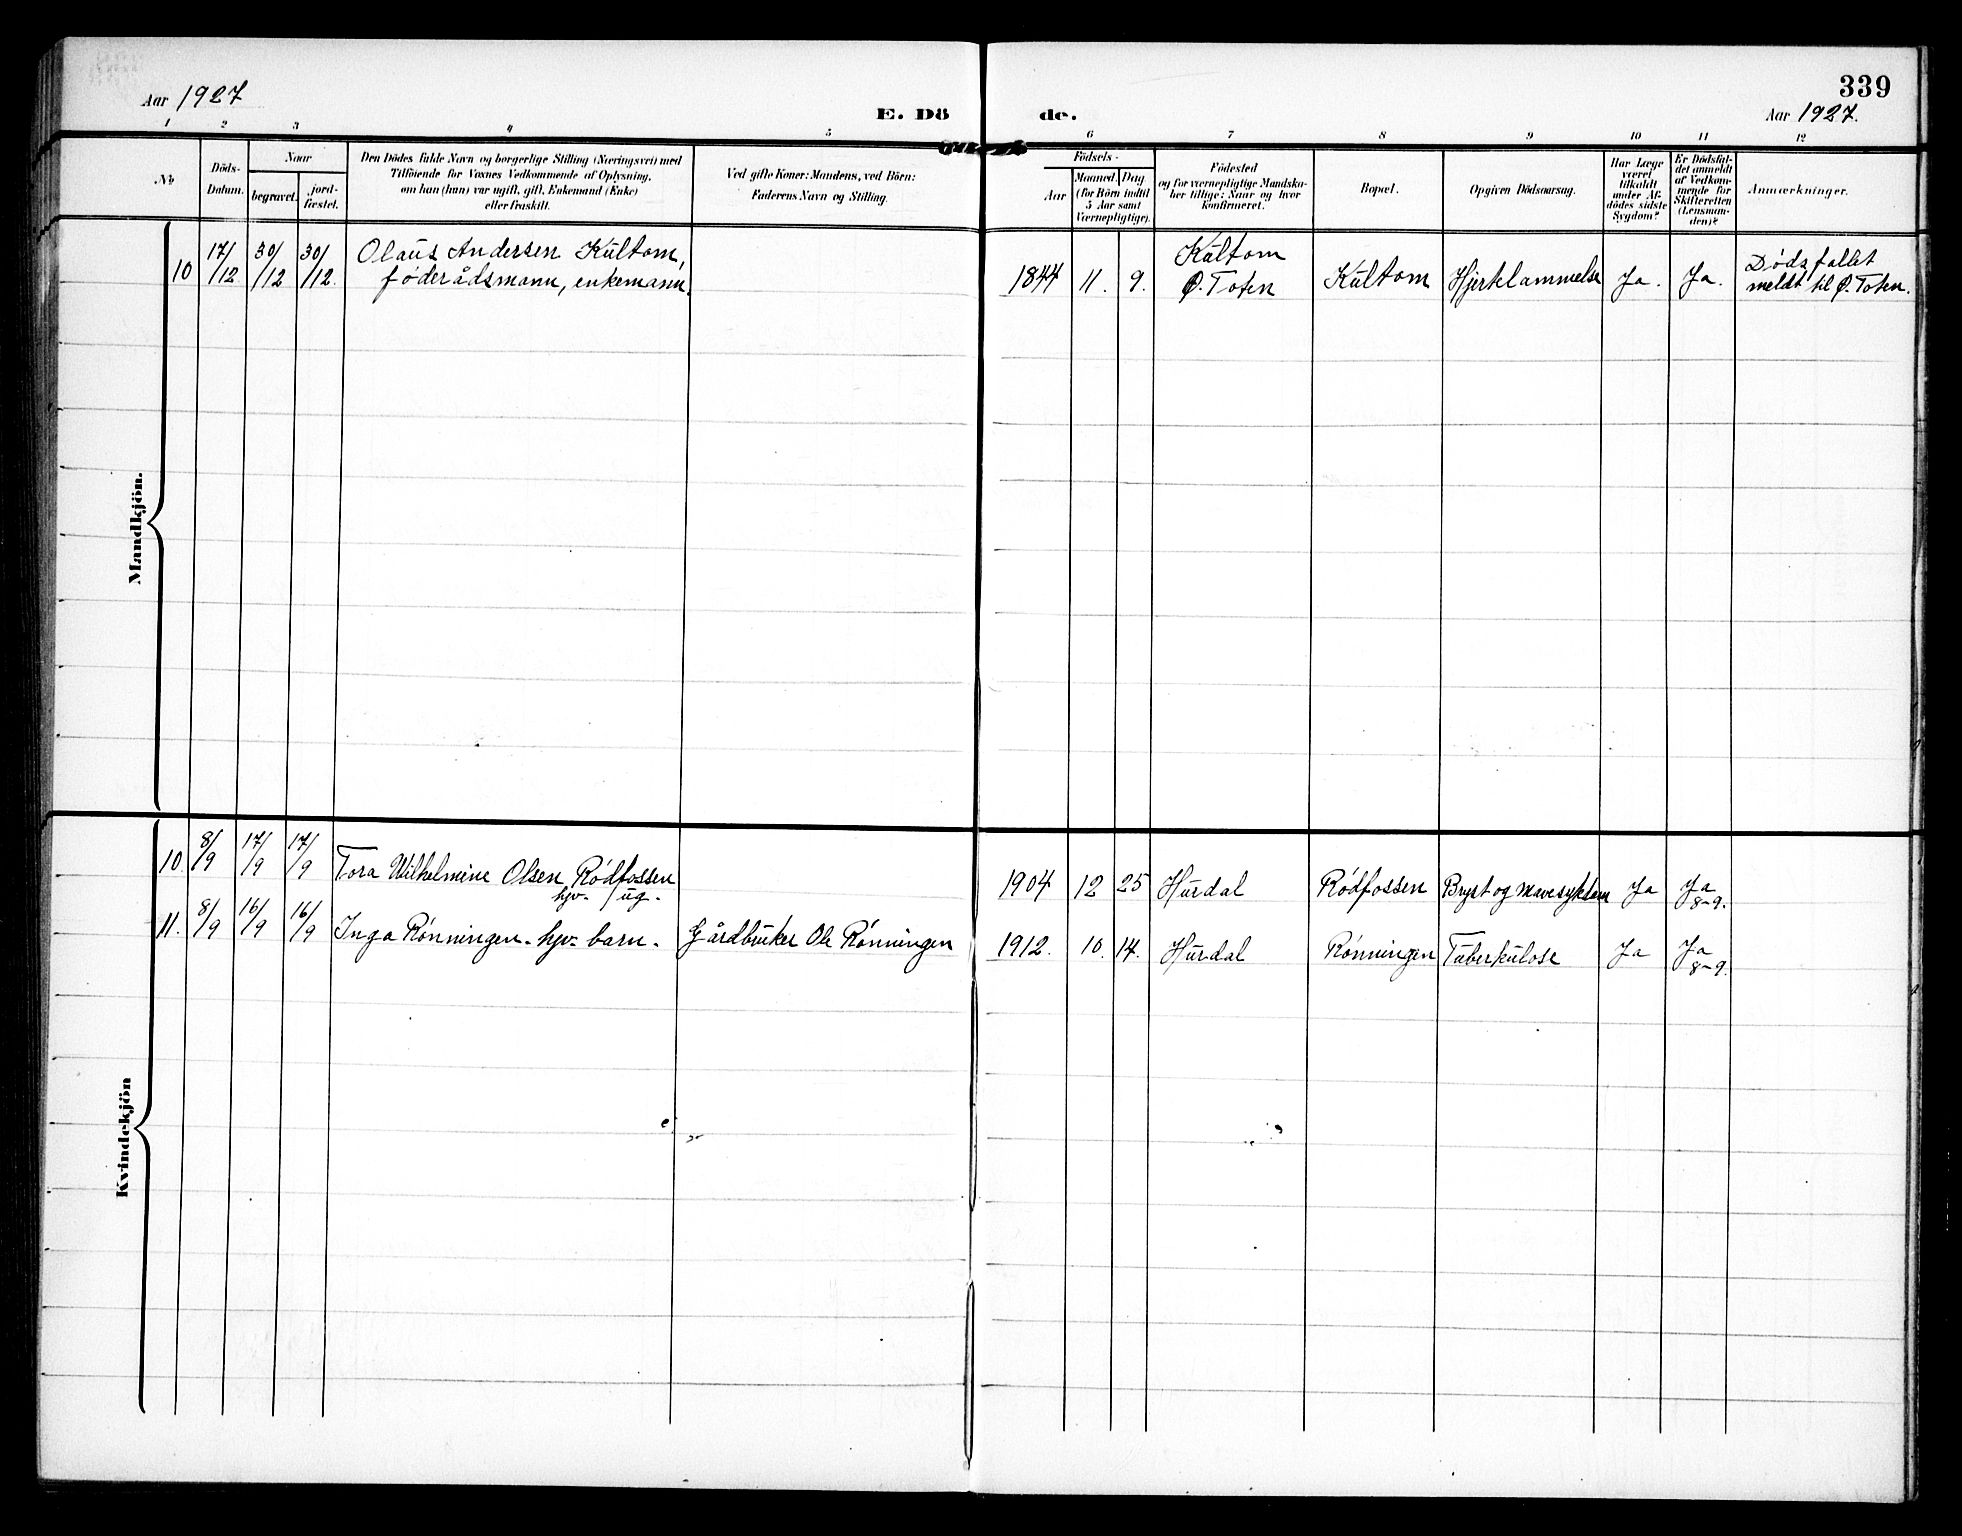 Aar 1927
E. Dö
de.
339
Aar 1927.
1 2 3 4 5 6 7 8 9 10 11 12
No
Döds-
Datum.
Naar
begravet.
jord-
fæstet.
Den Dödes fulde Navn og borgerlige Stilling (Næringsvei) med
Tilföiende for Voxnes Vedkommende af Oplysning,
om han (hun) var ugift, gift, Enkemand (Enke)
eller fraskilt.
Ved gifte Koner: Mandens, ved Börn:
Faderens Navn og Stilling.
Födsels-
Aar
Maaned. Dag
(for Börn indtil
5 Aar samt
Værnepligtige).
Födested
og for værnepligtige Mandska-
ber tillige: Naar og hvor
konfirmeret.
Bopæl.
Opgiven Dödsaarsag.
Har Læge
været
tilkaldt
under Af-
dödes sidste
Sygdom?
Er Dödsfal-
det anmeldt
af Vedkom-
mende for
Skifteretten
(Lensman-
den)?
Anmærkninger.
Mandkjön.
10 17/12 30/12 30/12. Olaus Andersen Kultom,
föderådsmann, enkemann.
1844 11. 9. Kultom
Ø. Toten
Kultom Hjerklammelse Ja. Ja. Dødsfallet
meldt til Ø. Toten.
Kvindekjön
10. 8/9 17/9 17/9 Tora Wilhelmine Olsen Rödfossen
hjv. ug.
1904 12 25 Hurdal Rödfossen Bryst og mavesykdom Ja Ja
8-9.
11. 8/9 16/9 16/9 Inga Rönningen - hjv. barn. Gårdbruker Ole Rönningen
1912. 10. 14. Hurdal Rönningen Tuberkulose Ja Ja
8-9.